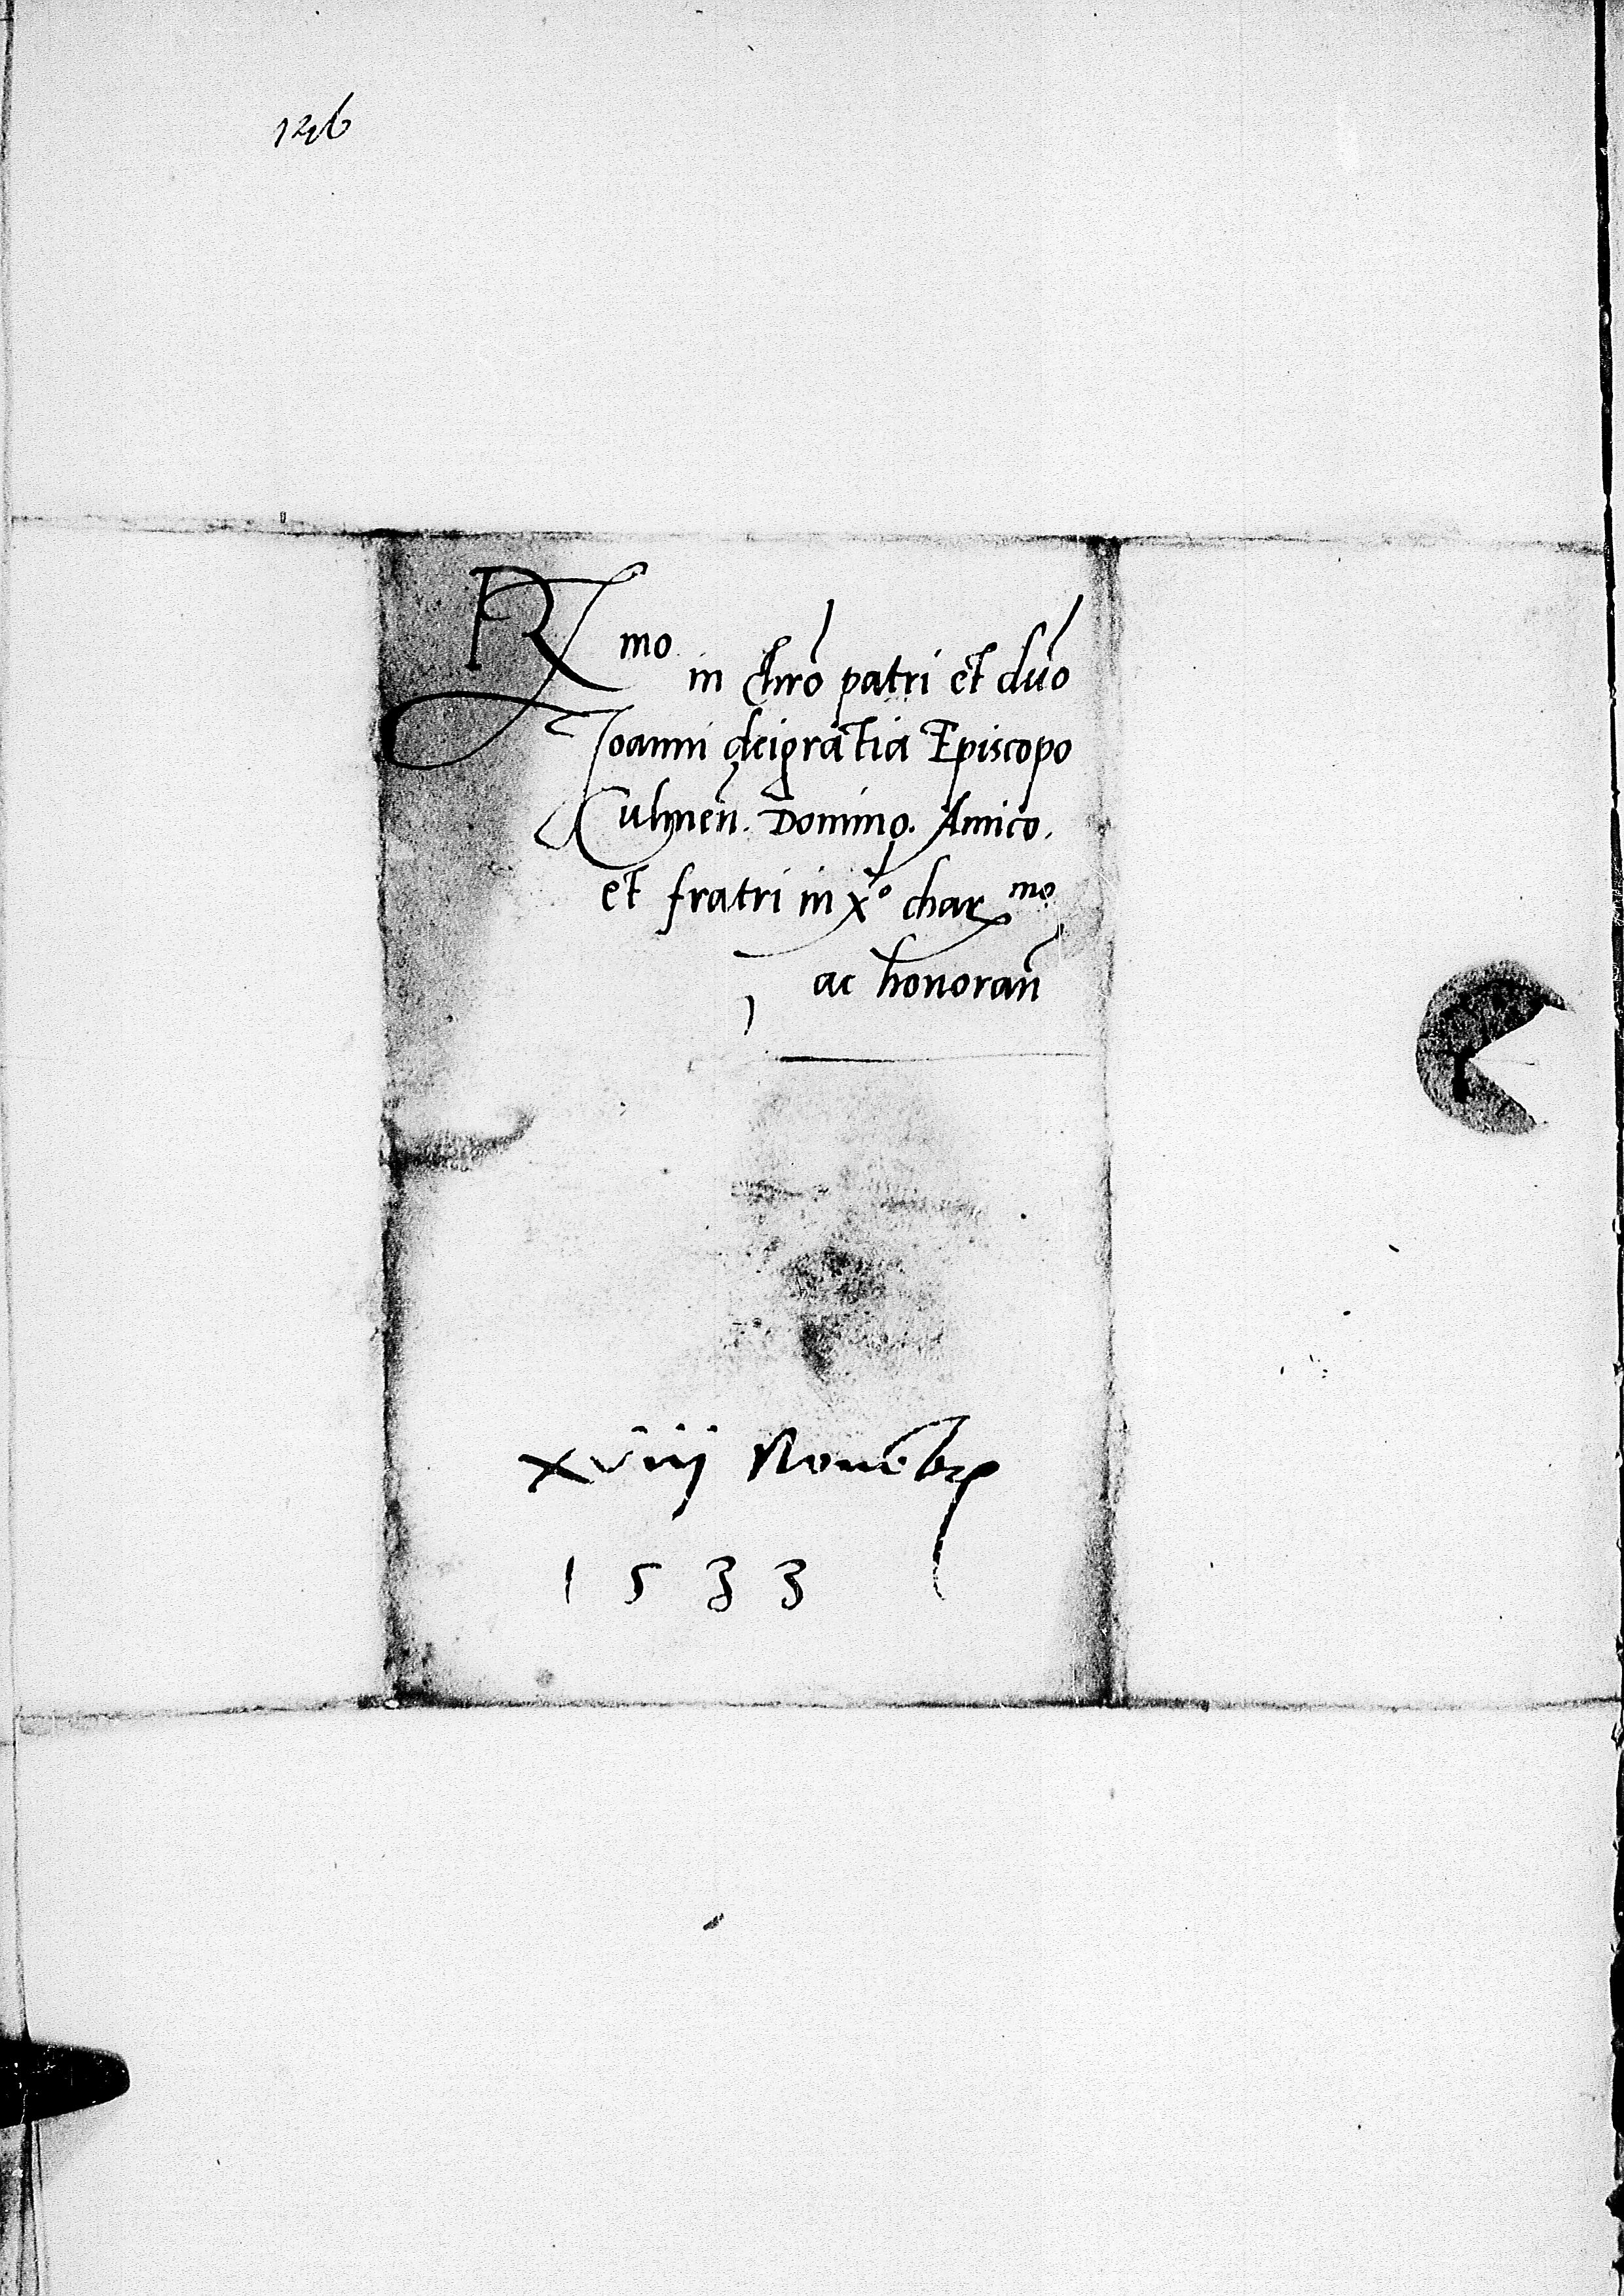 126
R mo in chr̃o patri et dño
Joanni dei gratia Episcopo
Culmeñ. Domino. Amico.
et fratri in x° char mo
ac honorañ
xviij Nouẽbr
1533